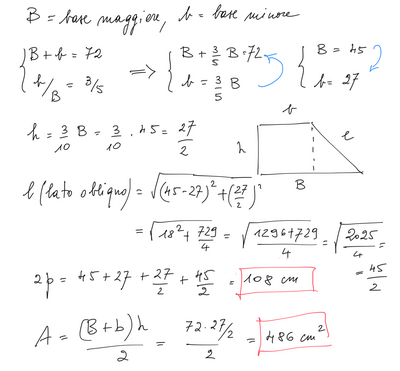 B = base maggiore, b = base minore
{ B + b = 72 ⟹ { B + 3/5 B = 72 { B = 45
{ b/B = 3/5 { b = 3/5 B { b = 27
h = 3/10 B = 3/10 · 45 = 27/2
b
h
l
B
l (lato obliquo) = √((45-27)² + (27/2)²)
= √(18² + 729/4) = √((1296+729)/4) = √(2025/4) =
= 45/2
2p = 45 + 27 + 27/2 + 45/2 = 108 cm
A = (B+b)h/2 = (72·27/2)/2 = 486 cm²